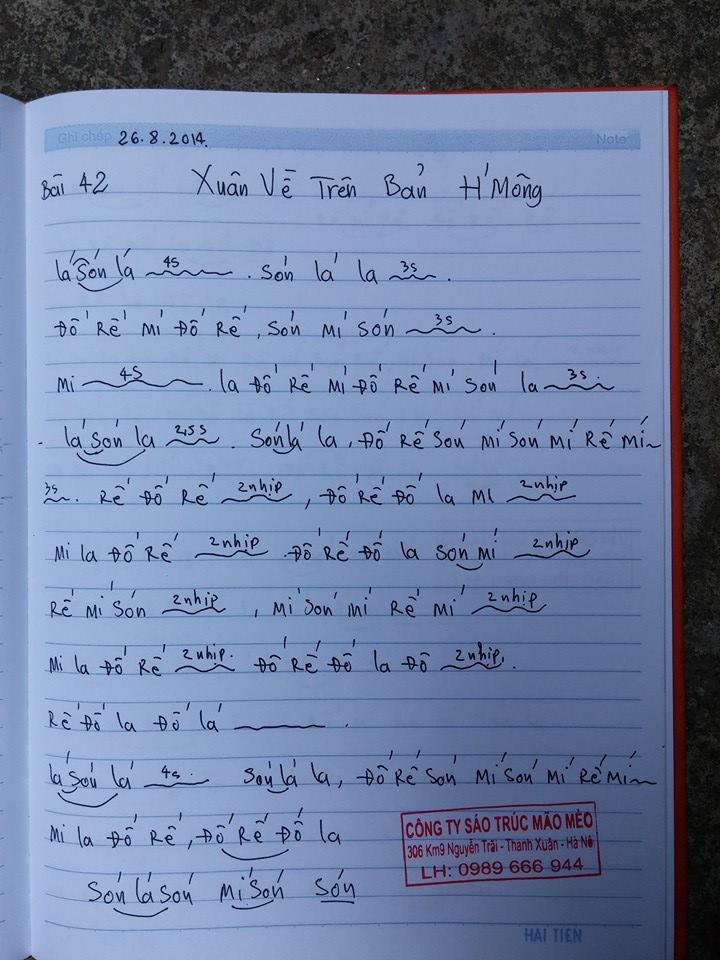 Ghi chép 26.8.2014. Note
Bài 42 Xuân Về Trên Bản H'Mông
lá Són lá 4s . Són lá la 3s .
Đố Rế Mí Đố Rế, Són Mí Són 3s .
Mi 4s . la Đố Rế Mí Đố Rế Mí Són la 3s .
- lá Són la 2,5s . Són lá la, Đố Rế Són Mí Són Mí Rế Mí~
3s . Rế Đố Rế 2 nhịp , Đố Rế Đố la Mi 2 nhịp
Mi la Đố Rế 2 nhịp Đố Rế Đố la Són Mí 2 nhịp
Rế Mí Són 2 nhịp , Mí Són Mí Rế Mí 2 nhịp
Mi la Đố Rế 2 nhịp. Đố Rế Đố la Đô 2 nhịp.
Rế Đố la Đố lá .
lá Són lá 4s. Són lá la, Đố Rế Són Mí Són Mí Rế Mí~
Mi la Đố Rế, Đố Rế Đố la
Són lá Són Mí Són Són
CÔNG TY SÁO TRÚC MÃO MÈO
306 Km9 Nguyễn Trãi - Thanh Xuân - Hà Nội
LH: 0989 666 944
HAI TIEN